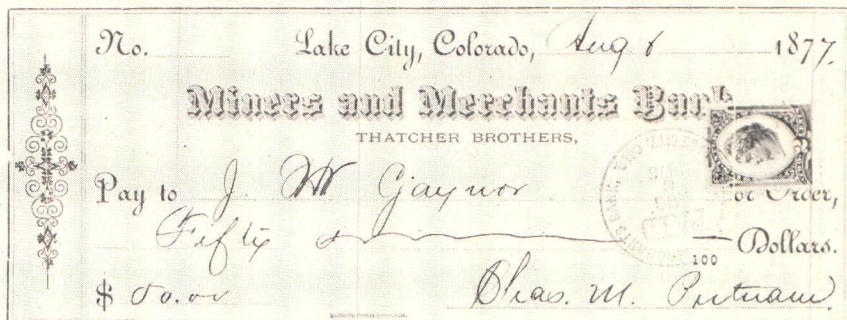 No. Lake City, Colorado, Aug 8 1877.
Miners and Merchants Bank
THATCHER BROTHERS,
Pay to J. W. Gaynor or Order,
Fifty 100 Dollars.
$ 50.00 Chas. M. Putnam